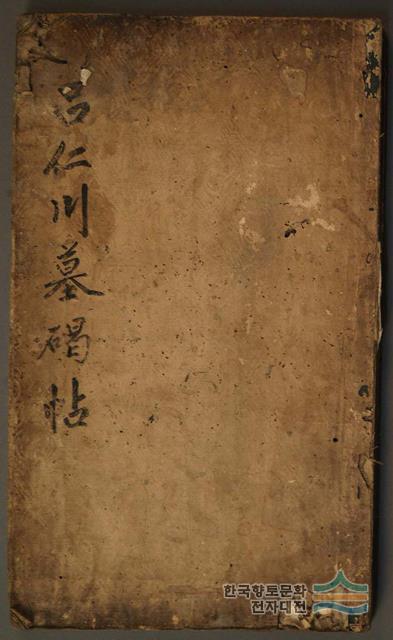 呂仁川墓碣帖
한국향토문화
전자대전